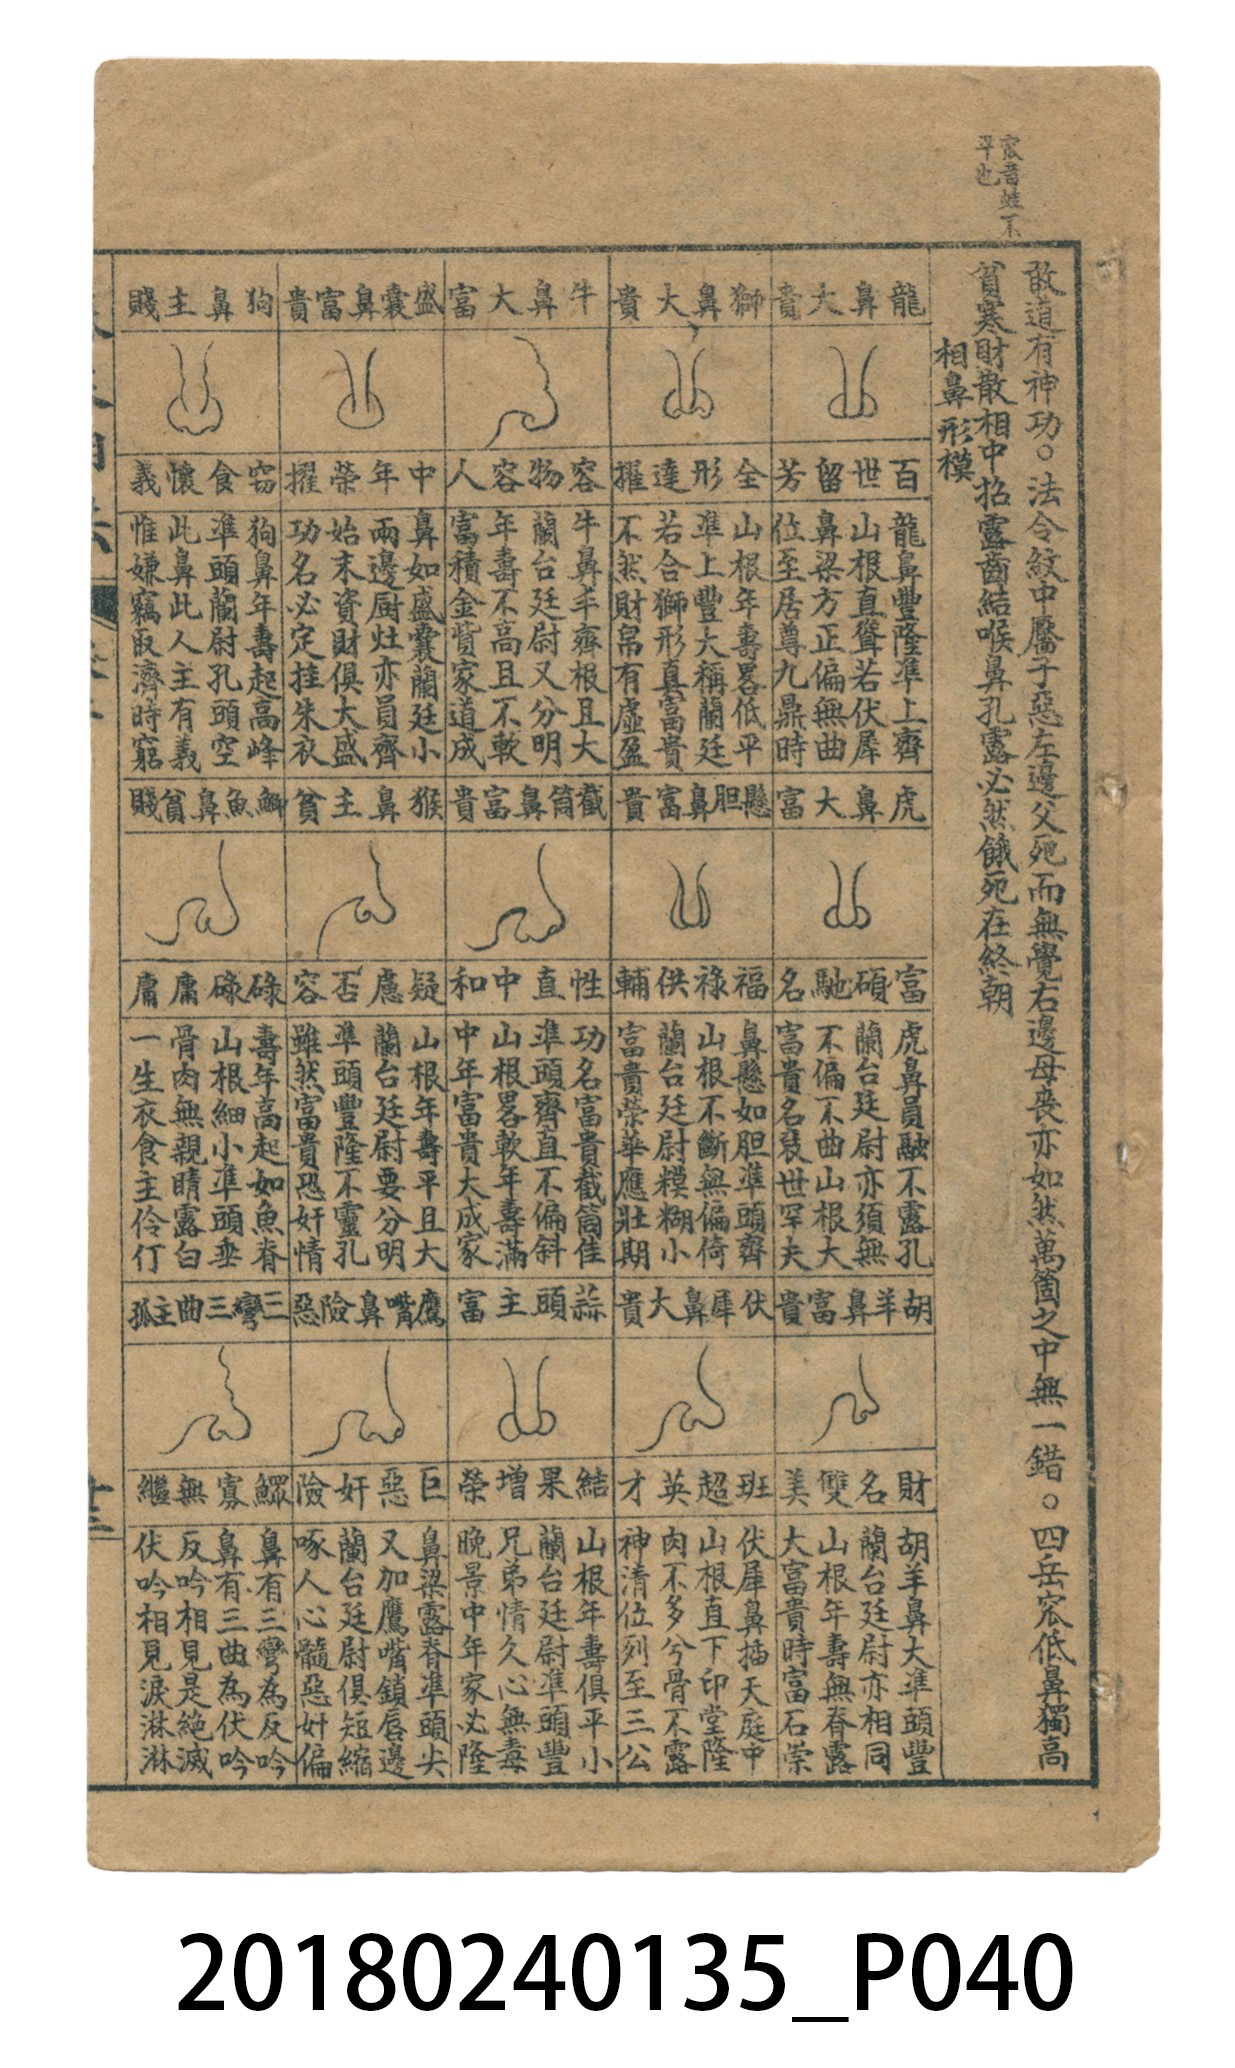 窊音蛙不
平也
敢道有神功○法令紋中黶子惡左邊父死而無覺右邊母丧亦如然萬箇之中無一錯○四岳窊低鼻獨高
貧寒財散相中招露齒結喉鼻孔露必然餓死在終朝
相鼻形模
龍鼻大貴
百世留芳
龍鼻豐隆準上齊
山根直聳若伏犀
鼻梁方正偏無曲
位至居尊九鼎時
獅鼻大貴
全形達擢
山根年壽畧低平
準上豐大稱蘭廷
若合獅形真富貴
不然財帛有虛盈
牛鼻大富
容物容人
牛鼻丰齊根且大
蘭台廷尉又分明
年壽不高且不軟
富積金貲家道成
盛囊鼻富貴
中年榮擢
鼻如盛囊蘭廷小
兩邊厨灶亦員齊
始末資財俱大盛
功名必定挂朱衣
狗鼻主賤
窃食懷義
狗鼻年壽起高峰
準頭蘭尉孔頭空
此鼻此人主有義
惟嫌竊取濟時窮
虎鼻大富
富碩馳名
虎鼻員融不露孔
蘭台廷尉亦須無
不偏不曲山根大
富貴名褒世罕夫
懸胆鼻富貴
福祿供輔
鼻懸如胆準頭齊
山根不斷無偏倚
蘭台廷尉糢糊小
富貴榮華應壯期
截筒鼻富貴
性直中和
功名富貴截筒佳
準頭齊直不偏斜
山根畧軟年壽滿
中年富貴大成家
猴鼻主貧
疑慮否容
山根年壽平且大
蘭台廷尉要分明
準頭豐隆不靈孔
雖然富貴恐奸情
鯽魚鼻貧賤
碌碌庸庸
壽年高起如魚脊
山根細小準頭垂
骨肉無親睛露白
一生衣食主伶仃
胡羊鼻富貴
財名雙美
胡羊鼻大準頭豐
蘭台廷尉亦相同
山根年壽無脊露
大富貴時富石崇
伏犀鼻大貴
班超英才
伏犀鼻插天庭中
山根直下印堂隆
肉不多兮骨不露
神清位列至三公
蒜頭主富
結果增榮
山根年壽俱平小
蘭台廷尉準頭豐
兄弟情久心無毒
晚景中年家必隆
鷹嘴鼻險惡
巨惡奸險
鼻梁露脊準頭尖
又加鷹嘴鎖唇邊
蘭台廷尉俱短縮
啄人心髓惡奸偏
三彎三曲主孤
鰥寡無繼
鼻有三彎為反吟
鼻有三曲為伏吟
反吟相見是絶滅
伏吟相見淚淋淋
20180240135_P040